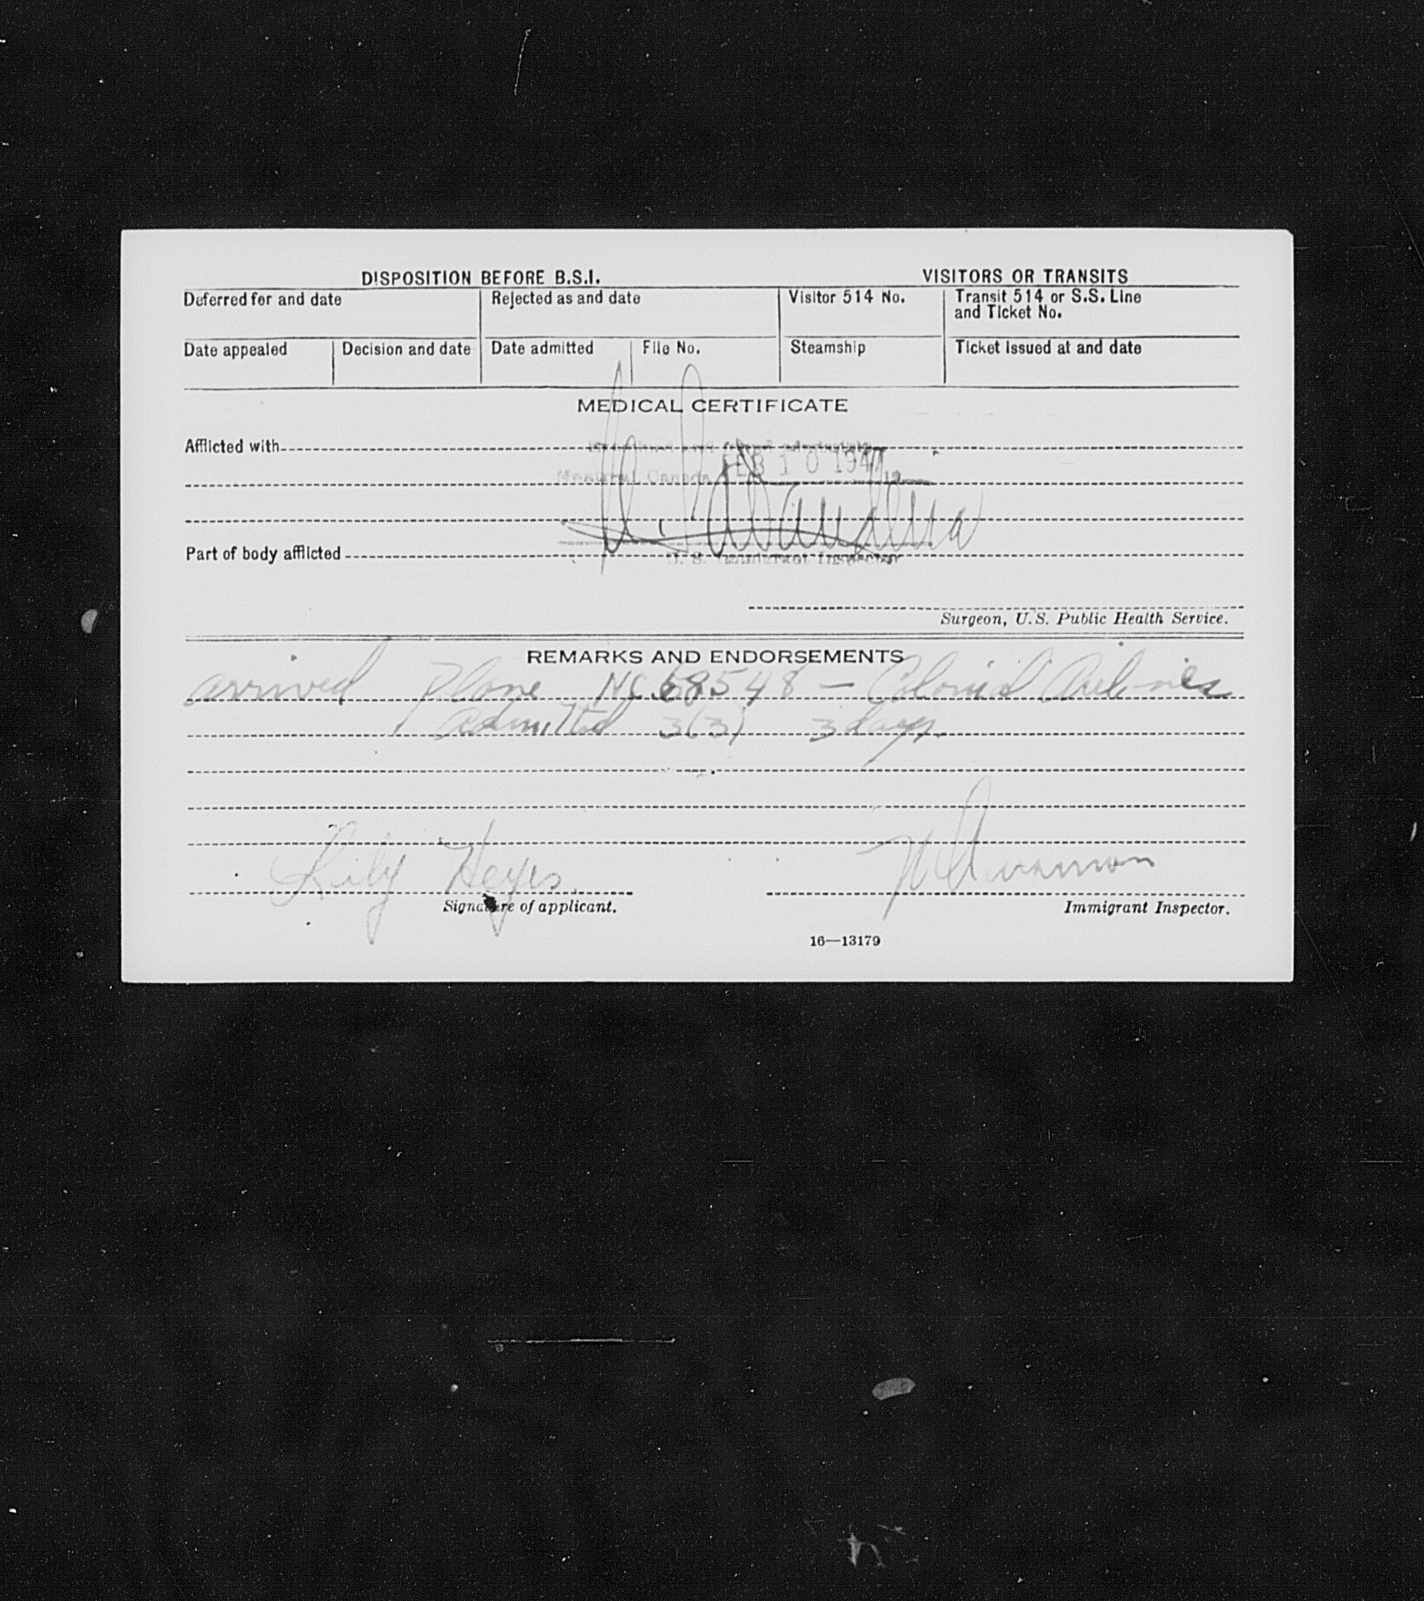 DISPOSITION BEFORE B.S.I. VISITORS OR TRANSITS
Deferred for and date Rejected as and date Visitor 514 No. Transit 514 or S.S. Line and Ticket No.
Date appealed Decision and date Date admitted File No. Steamship Ticket issued at and date
MEDICAL CERTIFICATE
Afflicted with
Montreal Canada FEB 10 1947
Part of body afflicted
U. S. Immigrant Inspector
Surgeon, U.S. Public Health Service.
REMARKS AND ENDORSEMENTS
arrived plane NC 68548 — Colonial Airlines
Admitted 3(3) 3 days.
Lily Heyes
Signature of applicant. Immigrant Inspector.
16—13179